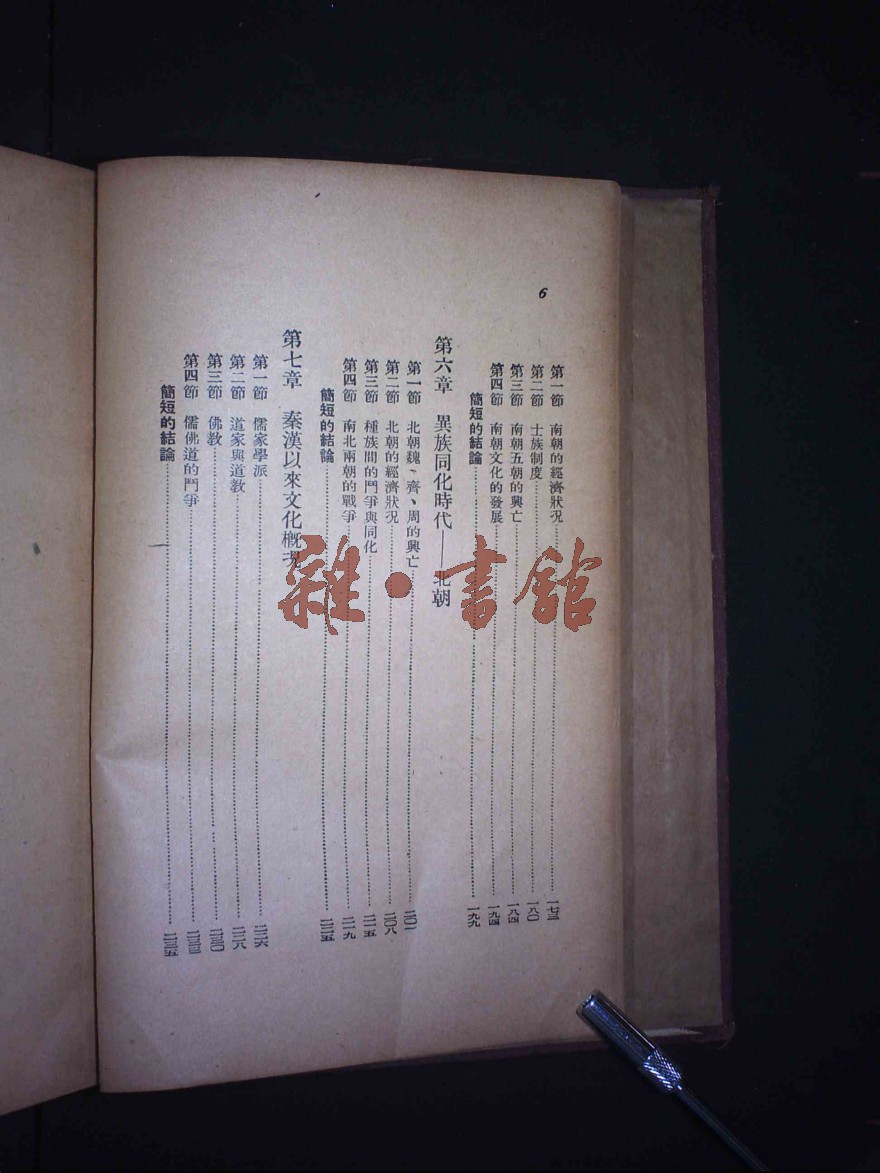 6
第一節　南朝的經濟狀况……一七三
第二節　士族制度……一八〇
第三節　南朝五朝的興亡……一八四
第四節　南朝文化的發展……一九四
簡短的結論……一九九
第六章　異族同化時代——北朝
第一節　北朝魏、齊、周的興亡……二〇一
第二節　北朝的經濟狀况……二〇八
第三節　種族間的鬥爭與同化……二一五
第四節　南北兩朝的戰爭……二一九
簡短的結論……二二五
第七章　秦漢以來文化概况
第一節　儒家學派……二二六
第二節　道家與道教……二二八
第三節　佛教……二三〇
第四節　儒佛道的鬥爭……二三三
簡短的結論……二三五
雜·書館